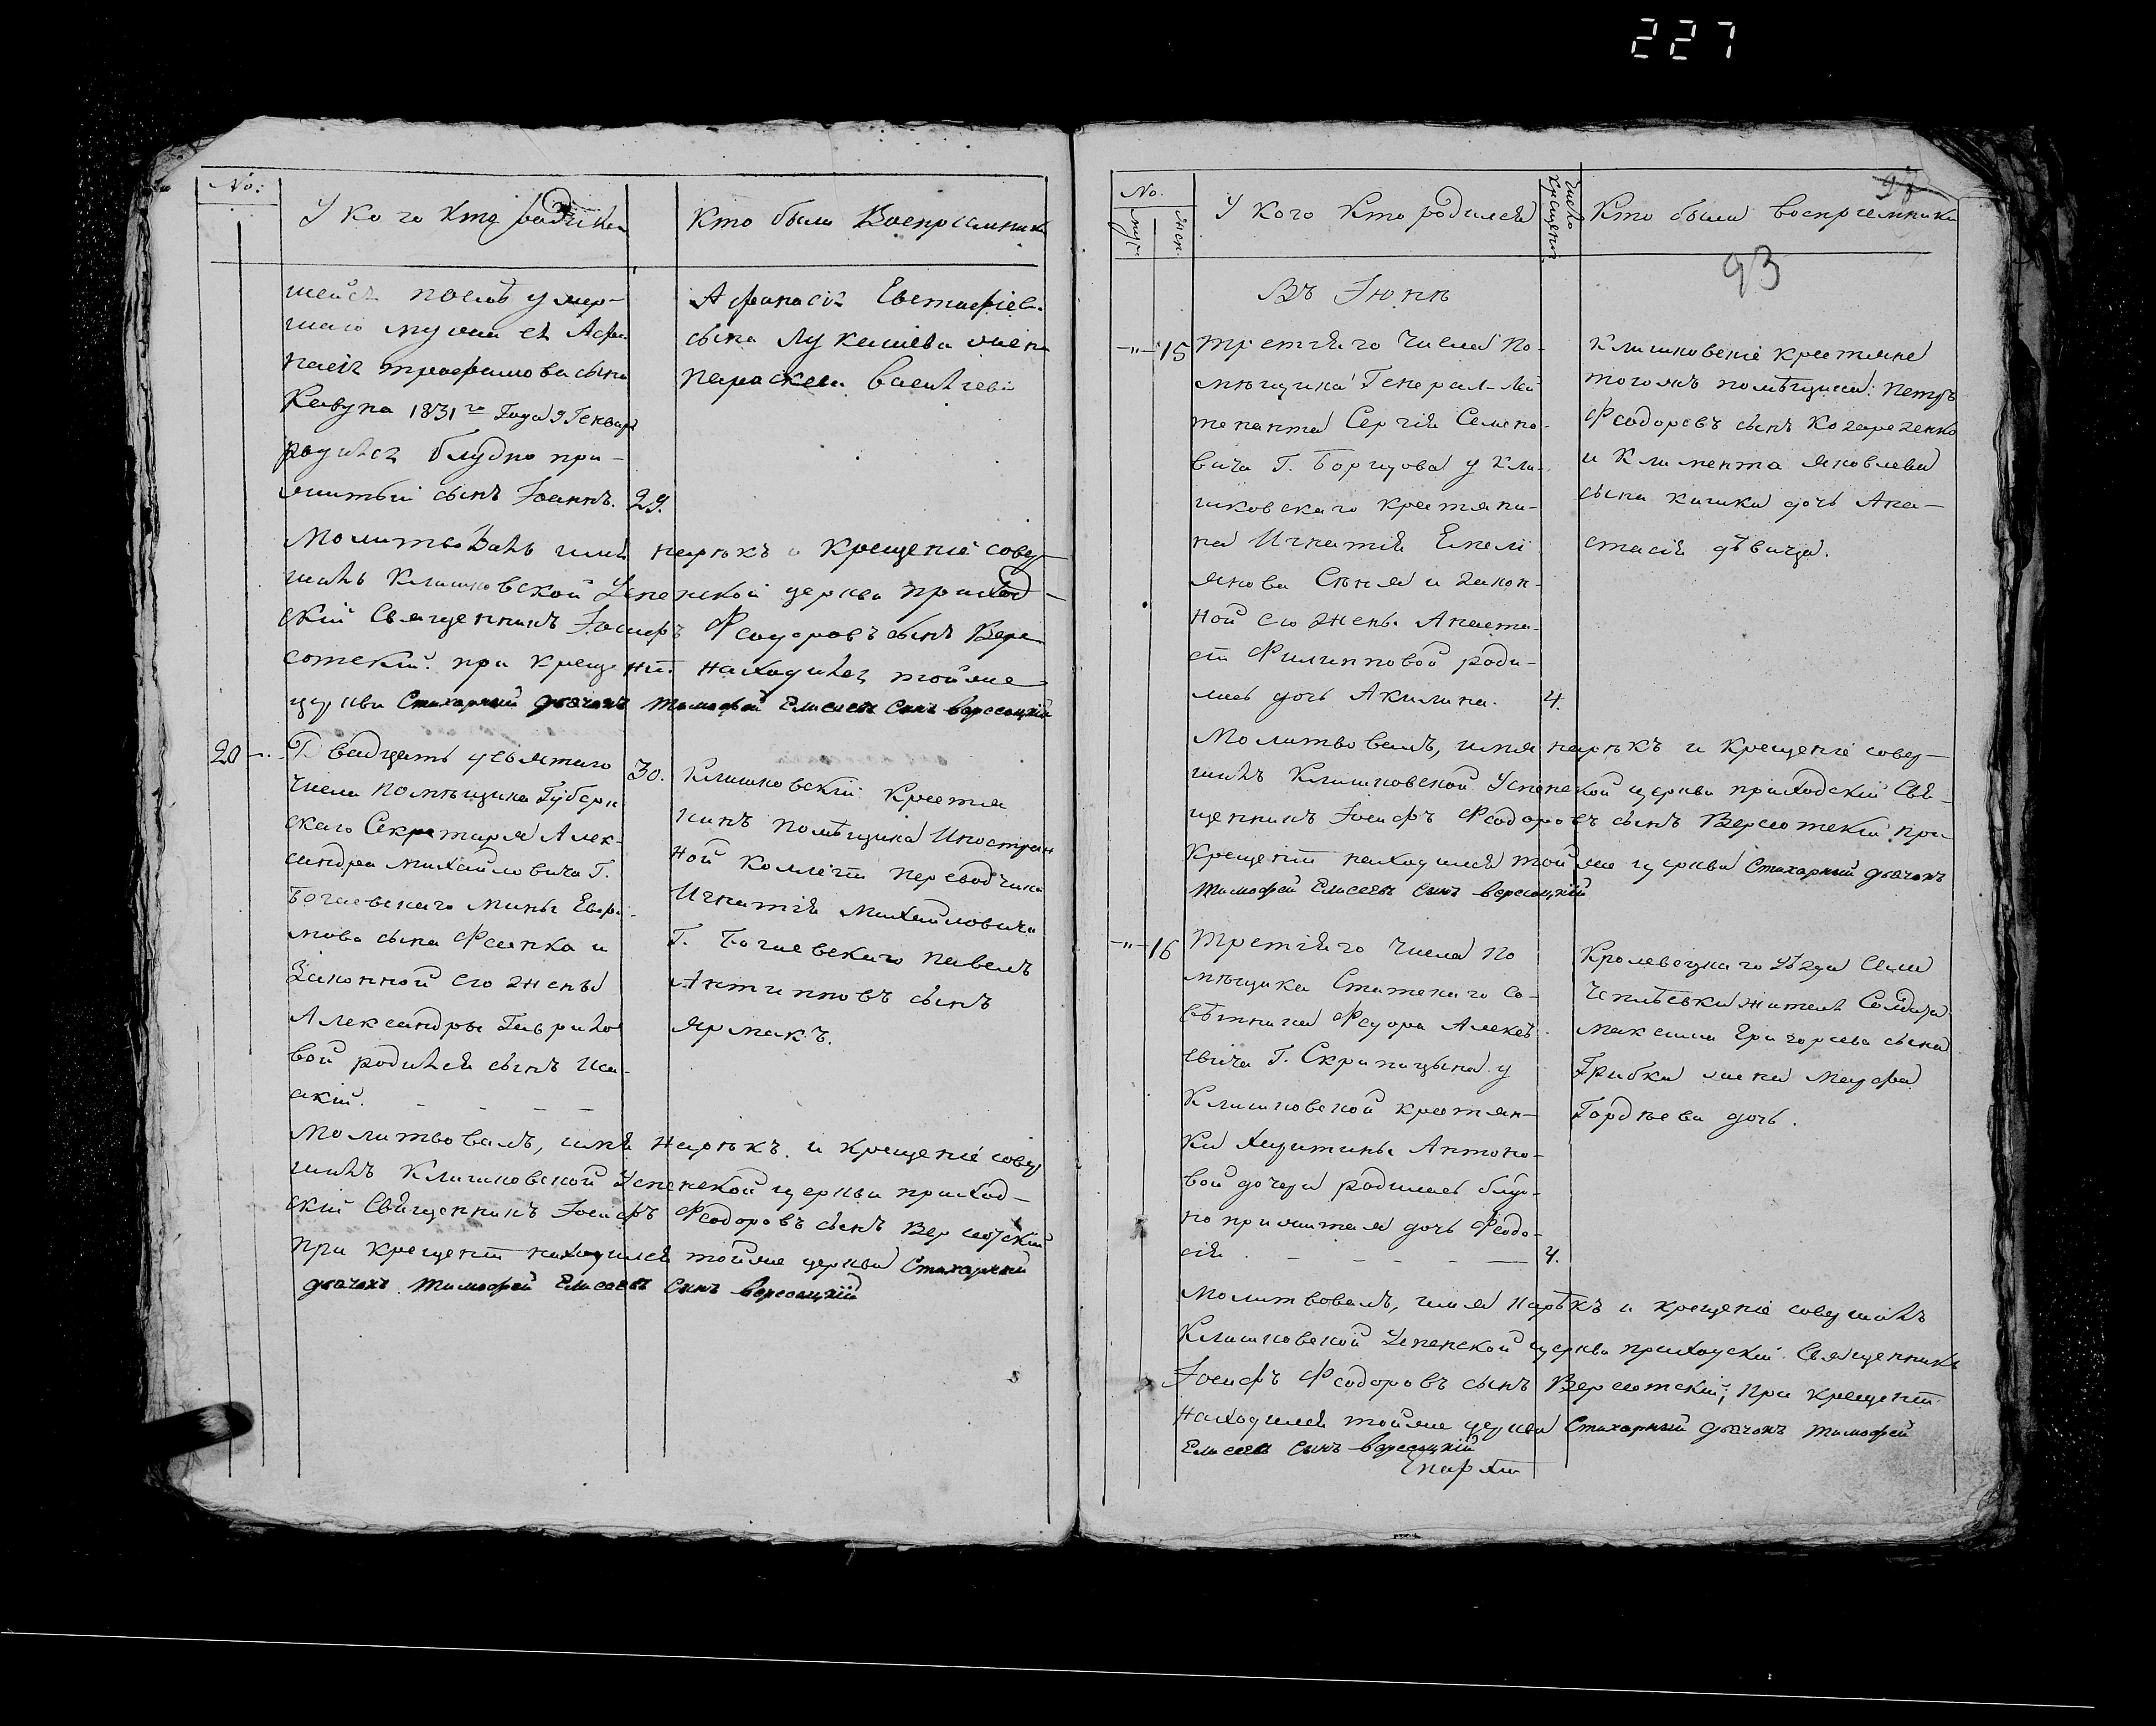 227
No:
У кого кто родился
Кто были Восприемники
шейся послѣ умер-
шаго мужа ея Афа
насія Трофимова сына
Кавуна 1831го Года 9 Генваря
родился блудно при-
житый сынъ Іоаннъ. 29.
Афанасія Евстафіева
сына Лукашева жена
Параскева Васильева
Молитвовалъ имя нарѣкъ и крещеніе совер-
шилъ Клишковской Успенской церкви приход-
скій Священникъ Іосифъ Феодоровъ сынъ Вере
сотскій. при крещеніи находился тойже
церкви Стихарный дьячокъ Тимофей Елисеевъ сынъ Вересоцкій
20 Двадцать девятаго 30.
числа помѣщика Губерн
скаго Секретаря Алек-
сандра Михайловича Г.
Богаевскаго Мины Евфи-
мова сына Фсенка и
Законной его жены
Александры Гаврило
вой родился сынъ Иса-
акій.
Клишковскій Крестья
нинъ помѣщика Иностран
ной Коллегіи Переводчика
Игнатія Михайловича
Г. Богаевскаго Павелъ
Антиповъ сынъ
Ярмакъ.
Молитвовалъ, имя нарѣкъ. и крещеніе совер
шилъ Клишковской Успенской церкви приход-
скій Священникъ Іосифъ Феодоровъ сынъ Версоцскій
при крещеніи находился тойже церкви Стихарный
дьячокъ Тимофей Елисеевъ Сынъ Вересоцкій
97
No.
муж.
Жен.
У кого Кто родился
Число Крещенія
Кто были восприемники
93
Въ Іюнѣ
-"- 15 Третіяго числа По-
мѣщика Генерал-Лей
тенанта Сергія Семено-
вича Г. Борщова у Кли-
шковскаго крестьяни-
на Игнатія Емели
янова Сѣня и закон-
ной его жены Анаста-
сіи Филипповой роди-
лась дочь Акилина. 4.
Клишковскіе крестьяне
тогожъ помѣщика: Петръ
Феодоровъ сынъ Козареженко
и Климента Яковлева
сына Кишки дочь Ана-
стасія дѣвица.
Молитвовалъ, имя нарѣкъ и крещеніе совер-
шилъ Клишковской Успенской церкви приходскій Свя-
щенникъ Іосифъ Феодоровъ сынъ Версотскій при
Крещеніи находился той же церкви Стихарный дьячокъ
Тимофей Елисеевъ сынъ Вересоцкій
-"- 16 Третіяго числа По
мѣщика Статскаго Со-
вѣтника Феодора Алексѣ-
евича Г. Скрипицына у
Клишковской крестьян-
ки Харитины Антоно-
вой дочери родилась блуд-
но прижитая дочь Феодо-
сія. 4.
Кролевецкаго уѣзда Села
Чепліевки жителя Солдата
Максима Григорьева сына
Грибка жена Марфа
Гордѣева дочь.
Молитвовалъ, имя нарѣкъ и крещеніе совершилъ
Клишковской Успенской церкви приходскій Священникъ
Іосифъ Феодоровъ сынъ Версотскій, При крещеніи
находился тойже церкви Стихарный дьячокъ Тимофей
Елисеевъ сынъ Вересоцкій